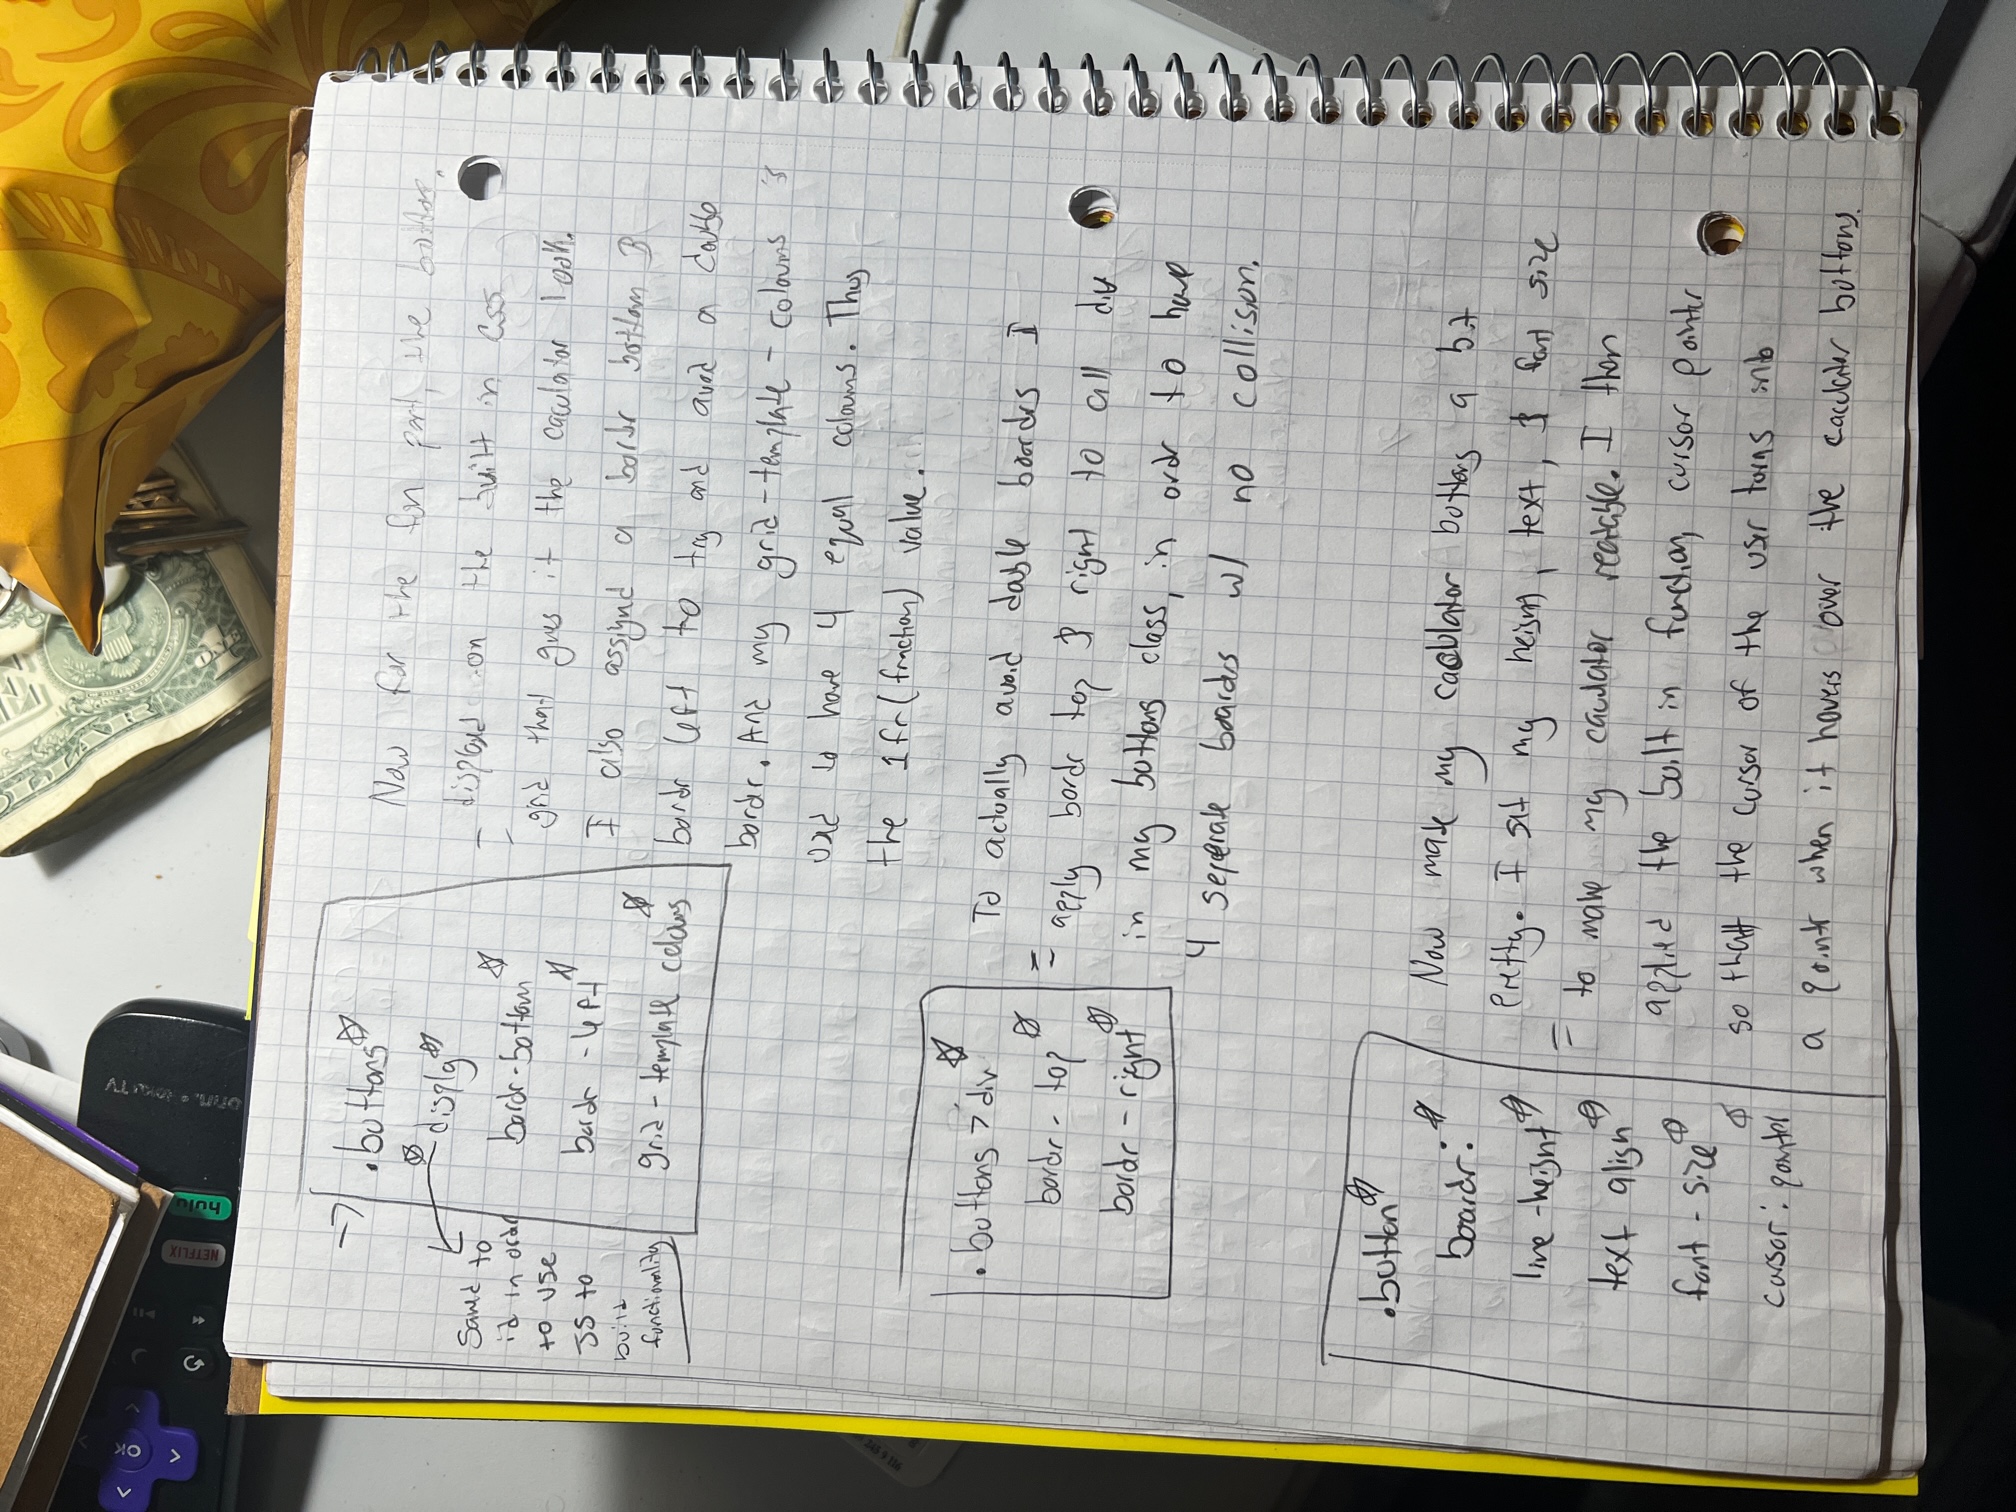 OK
NETFLIX
hulu
→ .buttons
disply
bordr-bottom
bordr-left
grid-template coloums
Saved to
id in order
to use
JS to
build
functionality
Now for the fun part, the buttons.
= displayed on the built in CSS
grid that gives it the caculator look.
I also assignd a bordr bottom &
bordr left to try and avod a double
bordr. And my grid-template-coloums is
usd to have 4 equal coloums. Thus
the 1fr (fraction) value.
.buttons > div
bordr-top
bordr-right
= To actually avoid double boardrs I
apply bordr top & right to all div
in my buttons class, in ordr to have
4 seperate boardrs w/ no collision.
.button
boardr:
line-height
text align
font-size
cursor: pointer
= Now make my caculator buttons a bit
pretty. I set my height, text, & font size
to make my caculator readable. I then
applied the built in function, cursor pointer
so that the cursor of the user turns into
a pointr when it hovers over the caculator buttons.